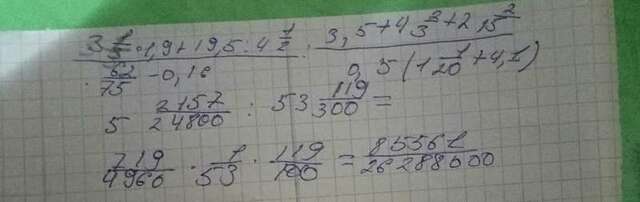 3 1/3 · 1,9 + 19,5 : 4 1/2 : 3,5 + 4 2/3 + 2 2/15
62/75 - 0,16 0,5 (1 1/20 + 4,1)
5 2157/24800 : 53 119/300 =
719/4960 · 1/53 · 119/100 = 85561/26288000